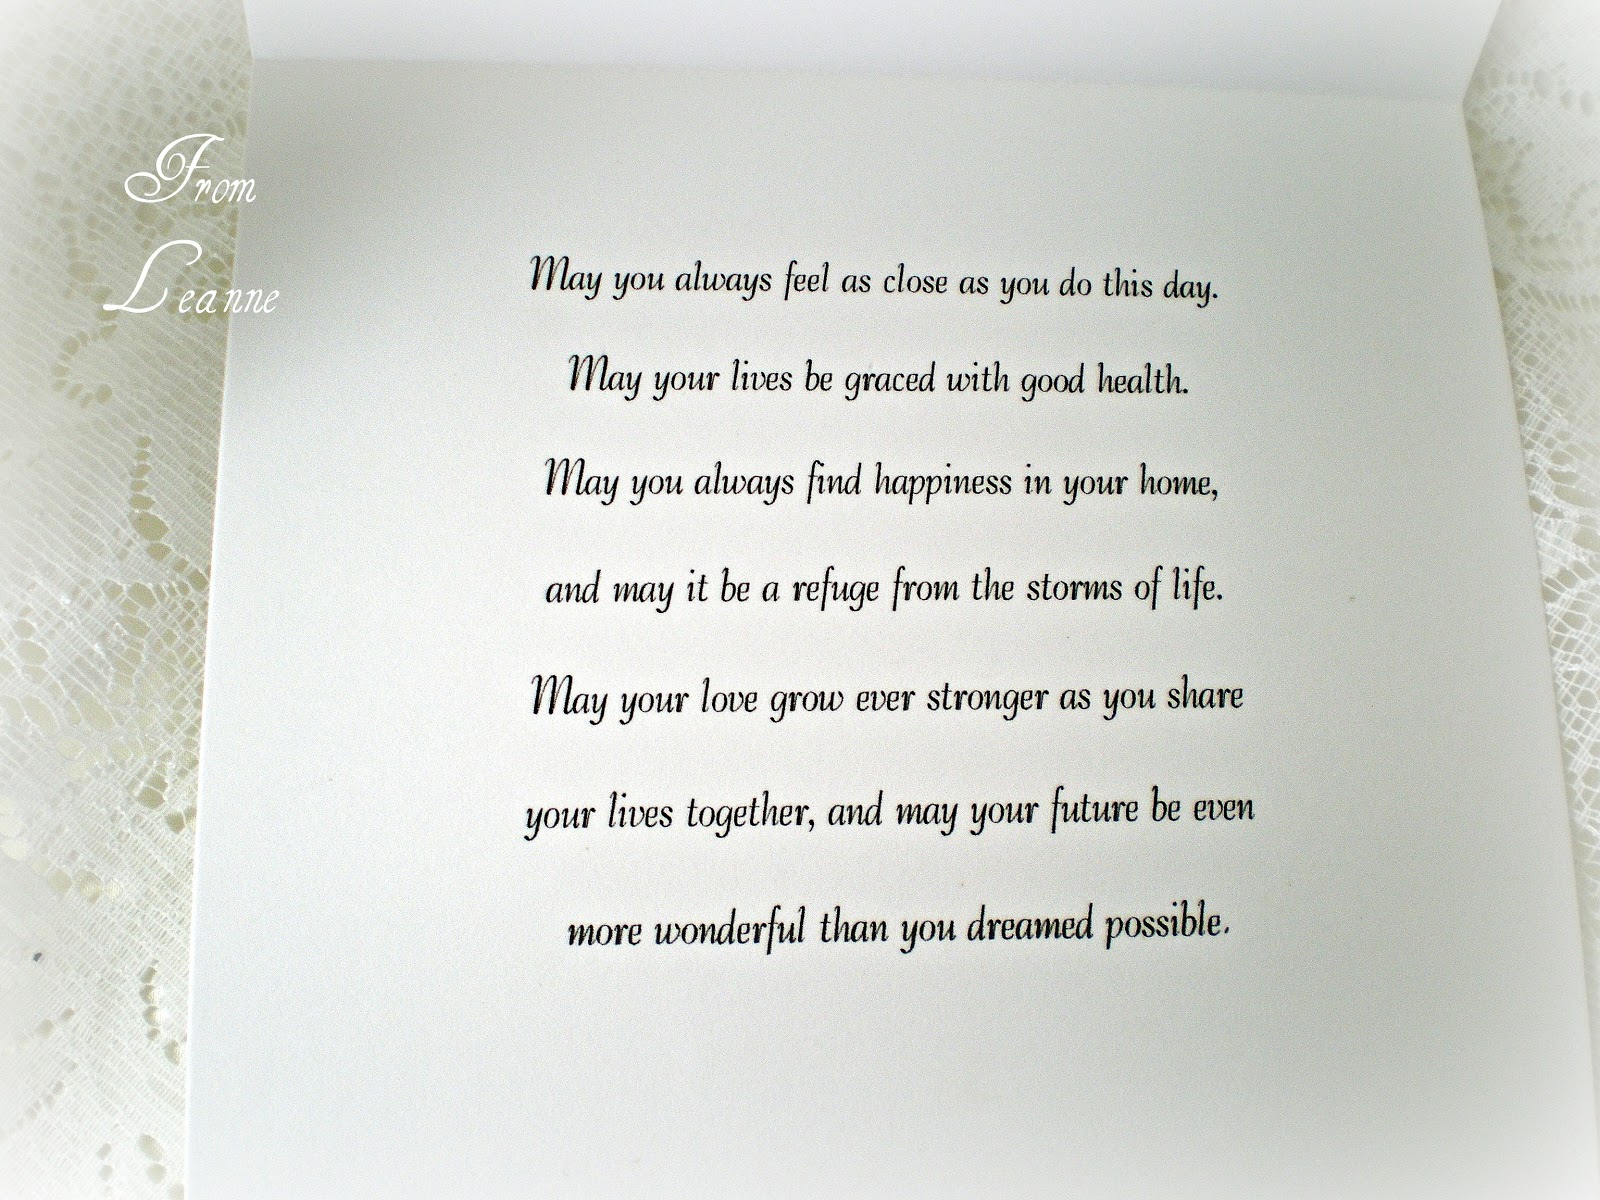 From
Leanne
May you always feel as close as you do this day.
May your lives be graced with good health.
May you always find happiness in your home,
and may it be a refuge from the storms of life.
May your love grow ever stronger as you share
your lives together, and may your future be even
more wonderful than you dreamed possible.